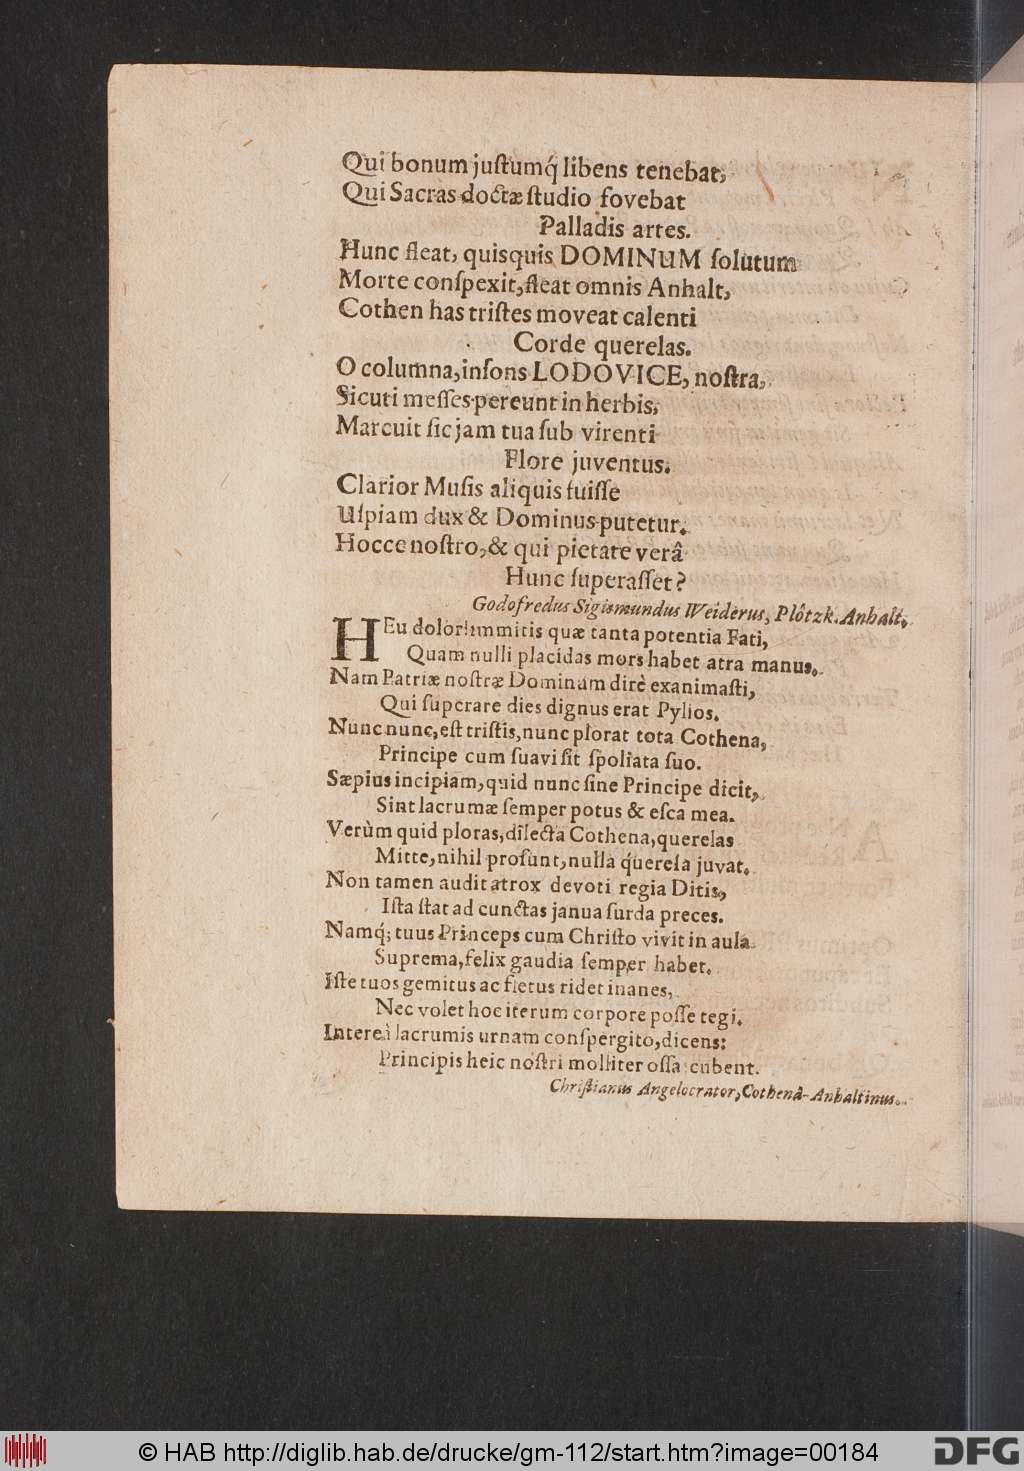 Qui bonum juſtumq́ libens tenebat,
Qui Sacras doctæ ſtudio fovebat
Palladis artes.
Hunc fleat, quisquis DOMINUM ſolutum
Morte conſpexit, fleat omnis Anhalt,
Cothen has triſtes moveat calenti
Corde querelas.
O columna, inſons LODOVICE, noſtra,
Sicuti meſſes pereunt in herbis,
Marcuit ſic jam tua ſub virenti
Flore juventus.
Clarior Muſis aliquis fuiſſe
Uſpiam dux & Dominus putetur.
Hocce noſtro, & qui pietate verâ
Hunc ſuperaſſet?
Godofredus Sigismundus Weiderus, Plôtzk. Anhalt.
HEu dolor! immitis quæ tanta potentia Fati,
Quam nulli placidas mors habet atra manus.
Nam Patriæ noſtræ Dominum dirè exanimaſti,
Qui ſuperare dies dignus erat Pylios.
Nunc nunc, eſt triſtis, nunc plorat tota Cothena,
Principe cum ſuavi ſit ſpoliata ſuo.
Sæpius incipiam, quid nunc ſine Principe dicit,
Sint lacrumæ ſemper potus & eſca mea.
Verùm quid ploras, dilecta Cothena, querelas
Mitte, nihil proſunt, nulla querela juvat.
Non tamen audit atrox devoti regia Ditis,
Iſta ſtat ad cunctas janua ſurda preces.
Namq́; tuus Princeps cum Chriſto vivit in aula
Suprema, felix gaudia ſemper habet.
Iſte tuos gemitus ac fletus ridet inanes,
Nec volet hoc iterum corpore poſſe tegi.
Intereà lacrumis urnam conſpergito, dicens:
Principis heic noſtri molliter oſſa cubent.
Chriſtianus Angelocrator, Cothenâ-Anhaltinus.
© HAB http://diglib.hab.de/drucke/gm-112/start.htm?image=00184
DFG